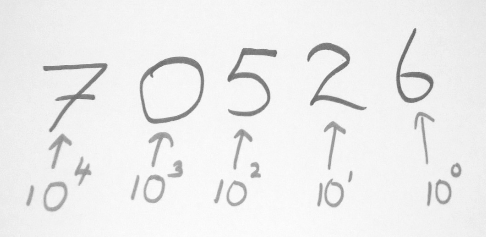 7 0 5 2 6
↑ ↑ ↑ ↑ ↑
10⁴ 10³ 10² 10¹ 10⁰